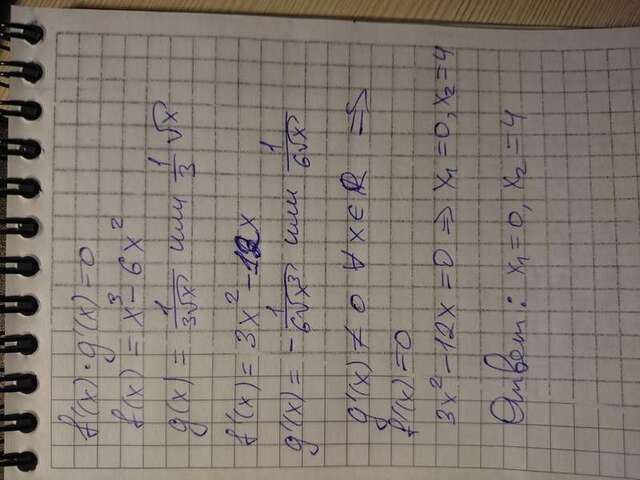 f'(x)·g'(x)=0
f(x)=x³-6x²
g(x)=1/(3√x) или 1/3 √x
f'(x)=3x²-12x
g'(x)=-1/(6√x³) или 1/(6√x)
g'(x)≠0 ∀x∈R ⇒
f'(x)=0
3x²-12x=0⇒x₁=0, x₂=4
Ответ: x₁=0, x₂=4